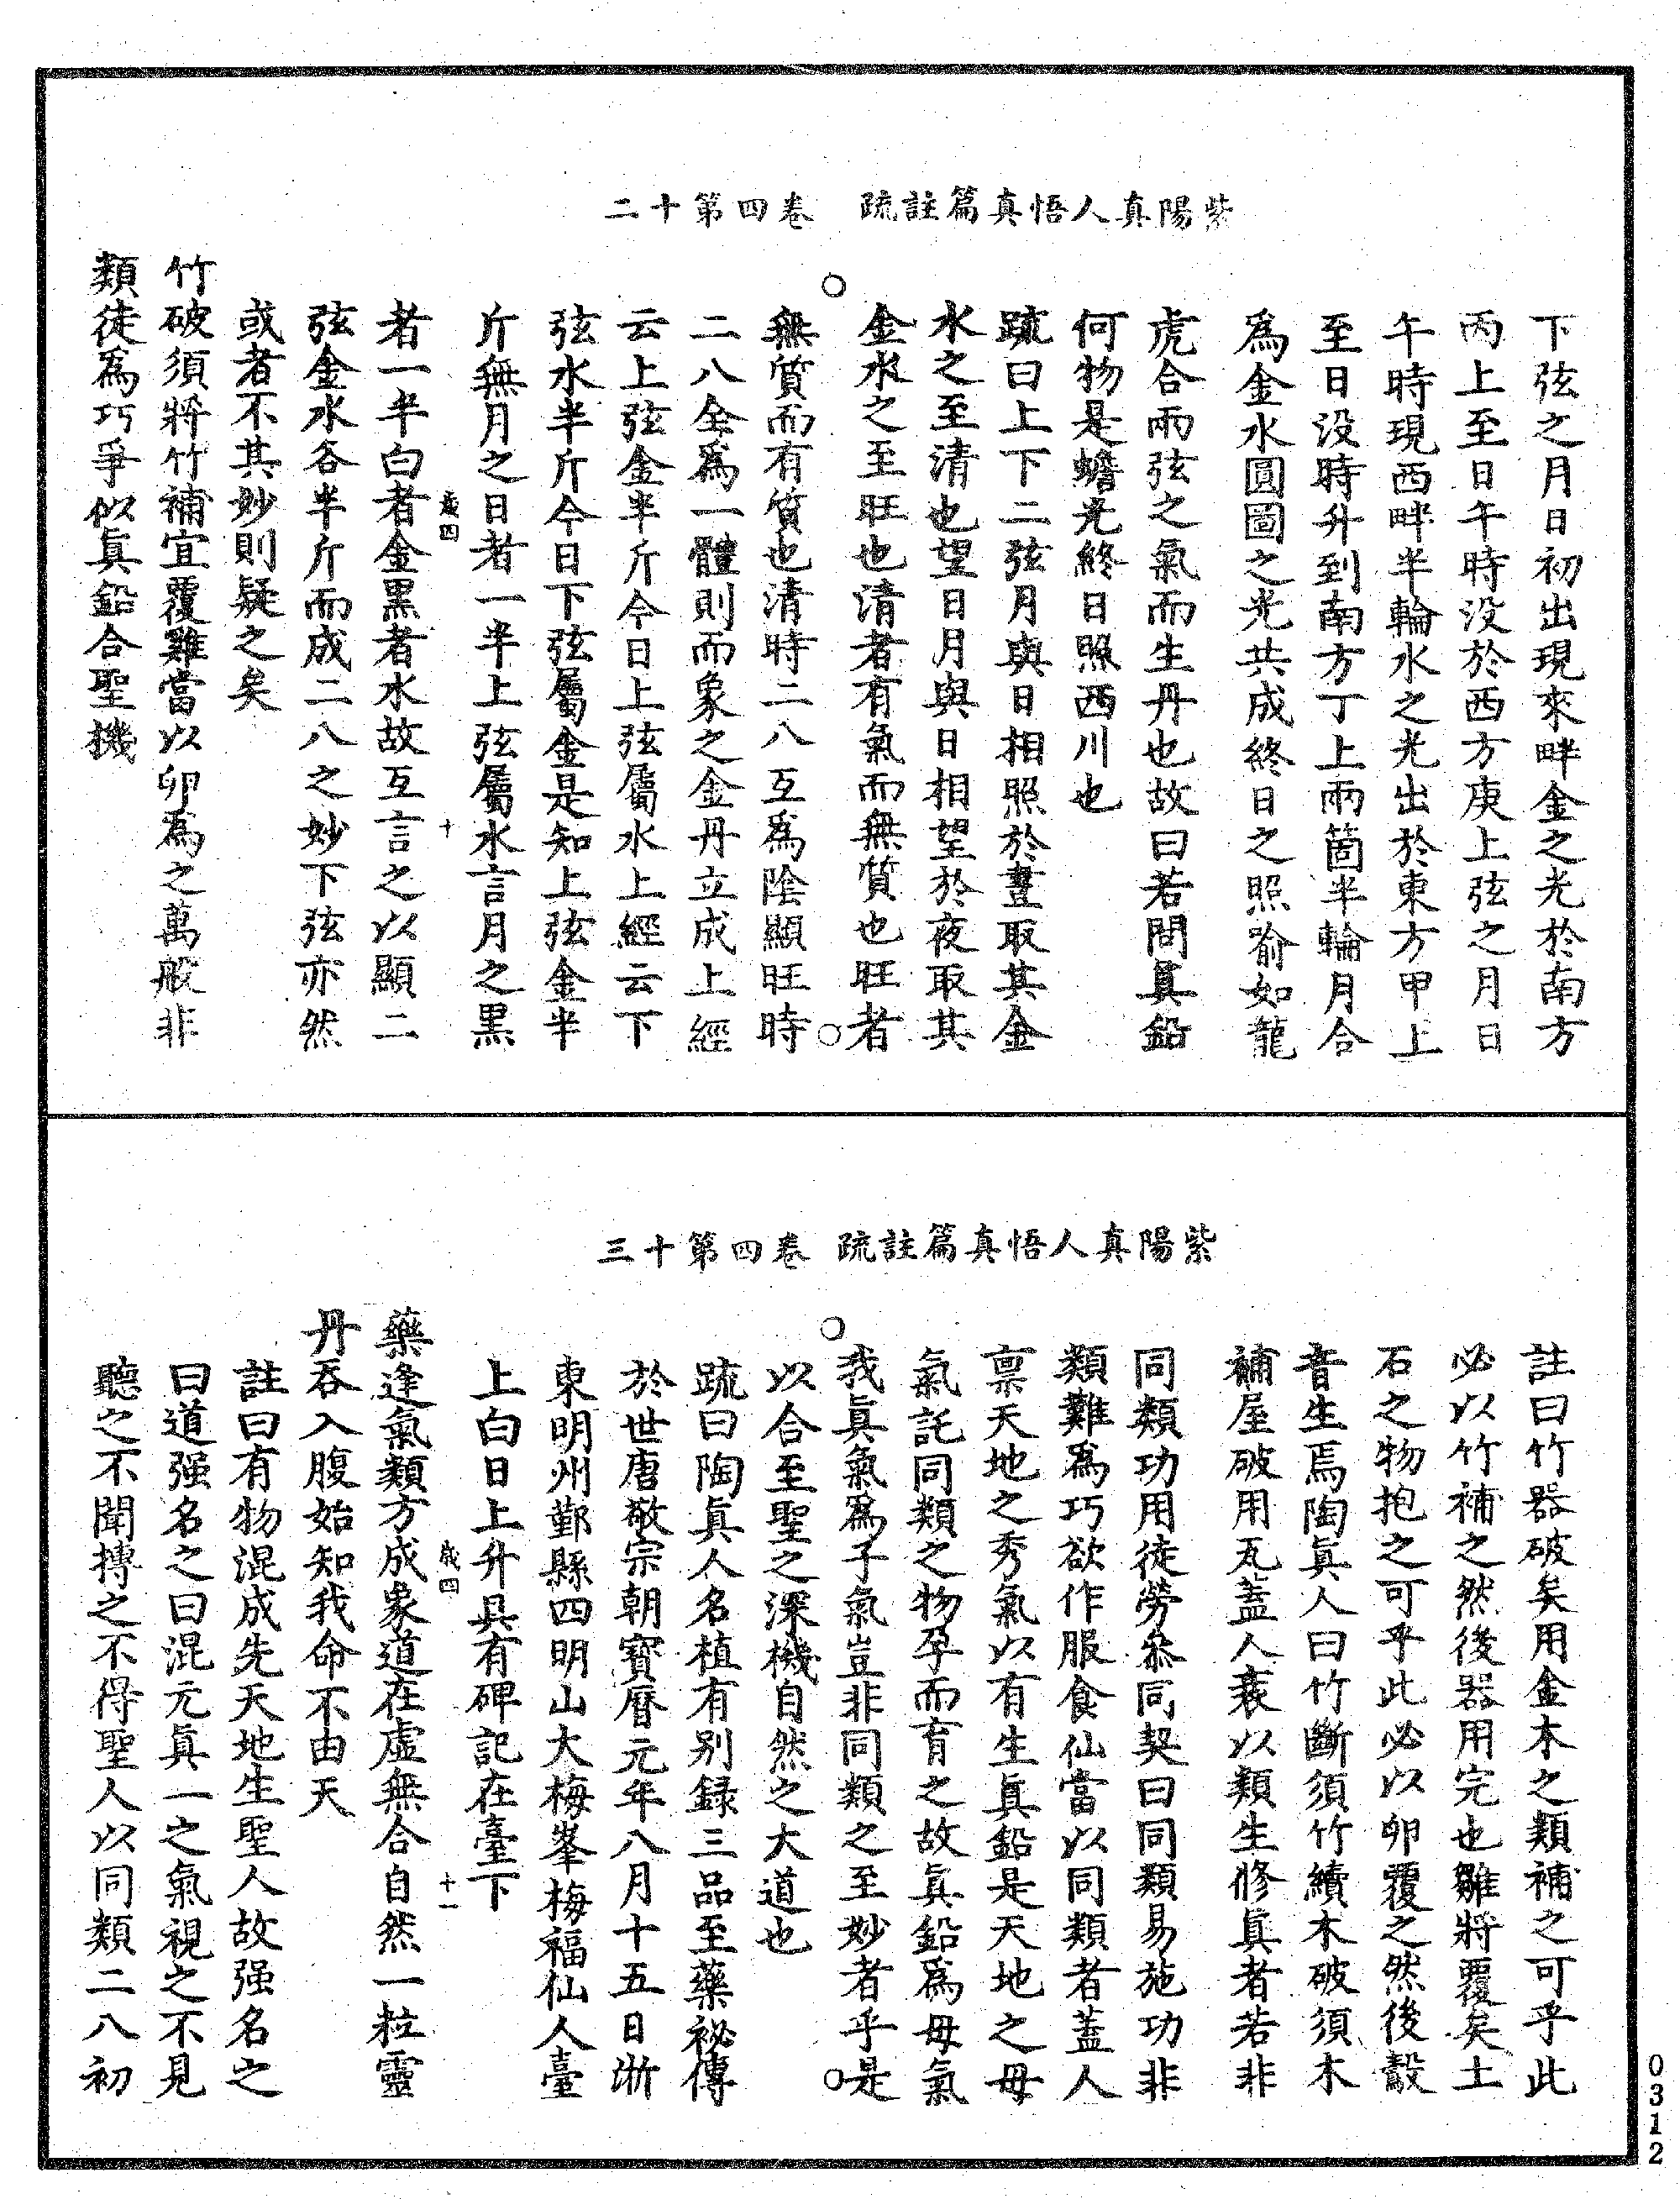 紫陽真人悟真篇註疏　卷四第十二
下弦之月日初出現來畔金之光於南方
丙上至日午時没於西方庚上弦之月日
午時現西畔半輪水之光出於東方甲上
至日没時升到南方丁上兩箇半輪月合
爲金水圓圖之光共成終日之照喻如龍
虎合兩弦之氣而生丹也故曰若問眞鉛
何物是蟾光終日照西川也
疏曰上下二弦月與日相照於晝取其金
水之至清也望日月與日相望於夜取其
金水之至旺也清者有氣而無質也旺者
無質而有質也清時二八互爲陰顯旺時
二八全爲一體則而象之金丹立成上經
云上弦金半斤今日上弦屬水上經云下
弦水半斤今日下弦屬金是知上弦金半
斤無月之日者一半上弦屬水言月之黑
歲四　十
者一半白者金黒者水故互言之以顯二
弦金水各半斤而成二八之妙下弦亦然
或者不其妙則疑之矣
竹破須將竹補宜覆雞當以卵爲之萬般非
類徒爲巧爭似眞鉛合聖機
紫陽真人悟真篇註疏　卷四第十三
註曰竹器破矣用金木之類補之可乎此
必以竹補之然後器用完也雛將覆矣土
石之物抱之可乎此必以卵覆之然後鷇
音生焉陶眞人曰竹斷須竹續木破須木
補屋破用瓦蓋人衰以類生修眞者若非
同類功用徒勞叅同契曰同類易施功非
類難爲巧欲作服食仙當以同類者蓋人
禀天地之秀氣以有生眞鉛是天地之母
氣託同類之物孕而育之故眞鉛爲母氣
我眞氣爲子氣豈非同類之至妙者乎是
以合至聖之深機自然之大道也
疏曰陶眞人名植有别録三品至藥祕傳
於世唐敬宗朝寳曆元年八月十五日浙
東明州鄞縣四明山大梅峯梅福仙人臺
上白日上升具有碑記在臺下
歲四　十一
藥逢氣類方成象道在虚無合自然一粒靈
丹吞入腹始知我命不由天
註曰有物混成先天地生聖人故强名之
曰道强名之曰混元眞一之氣視之不見
聽之不聞搏之不得聖人以同類二八初
0312